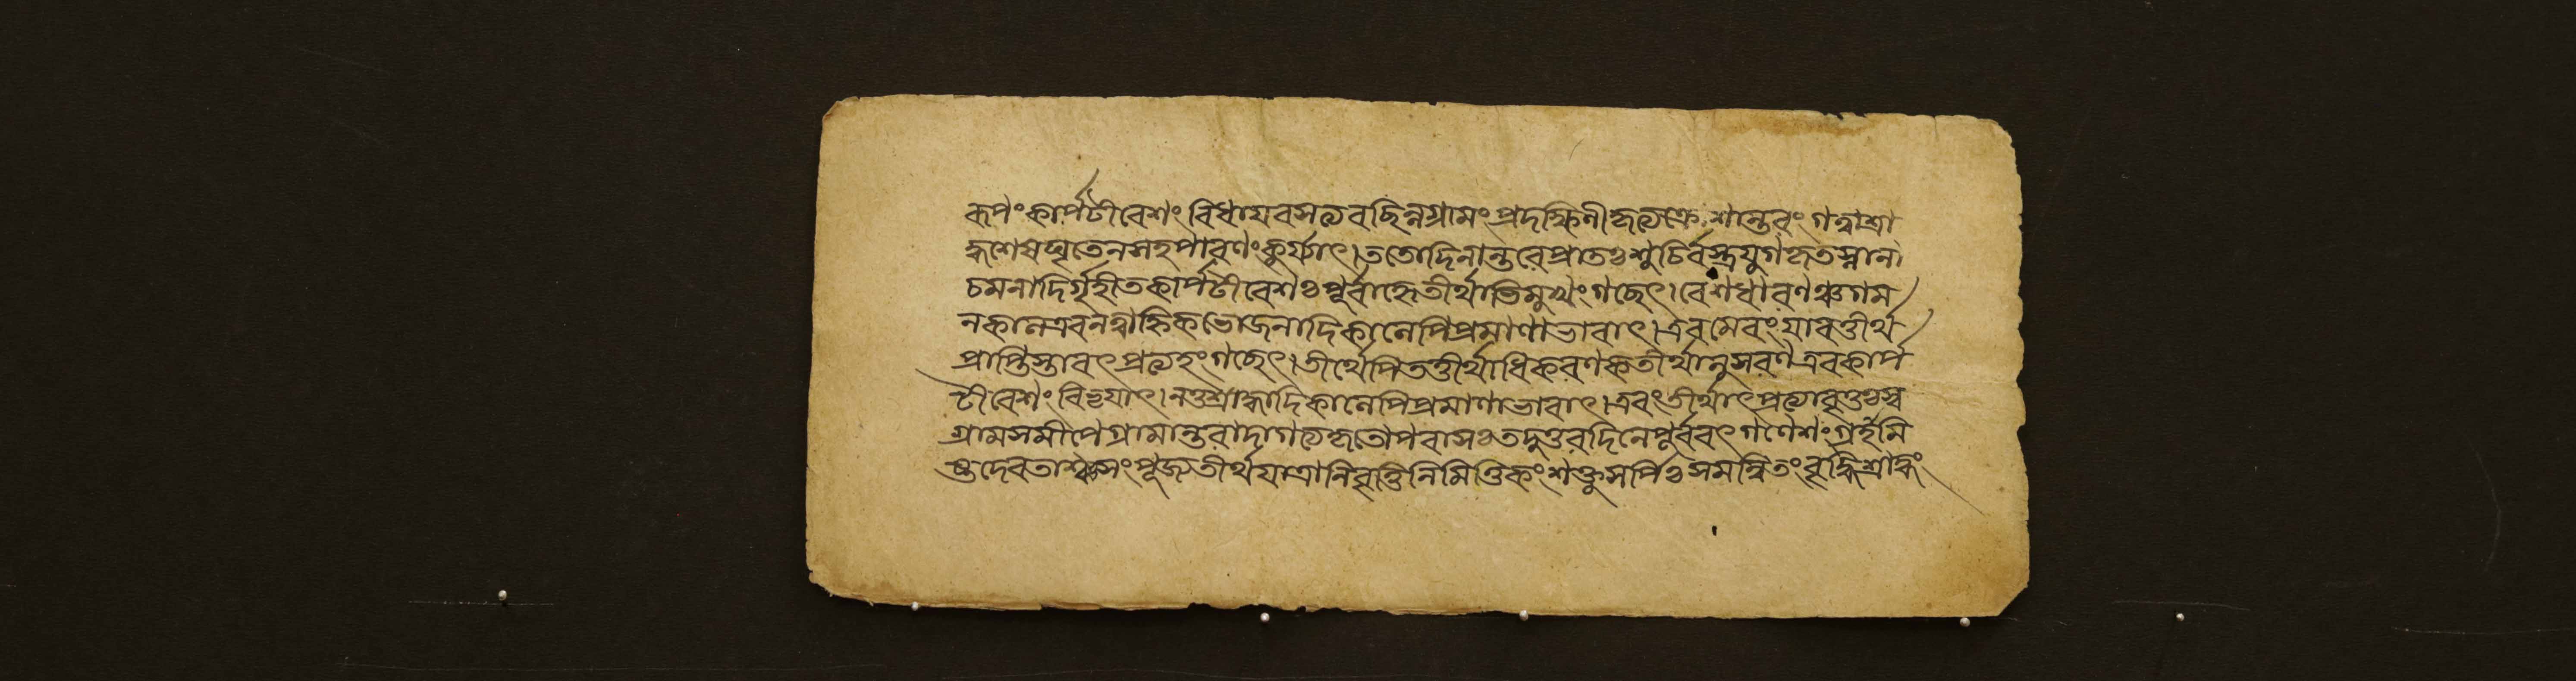 রূপং কার্পটীবেশং বিধায বসত্যবছিন্নগ্রামং প্রদক্ষিণীকৃত্য ক্রোশান্তরং গত্বা শ্রা
দ্ধশেষঘৃতেন সহ পারণং কুর্য্যাৎ। ততো দিনান্তরে প্রাতঃ শুচির্বস্ত্রযুগ কৃতস্নানা
চমনাদির্গৃহীতকার্পটীবেশঃ পূর্বাহ্নে তীর্থাভিমুখং গছেৎ। বেশধারণঞ্চ গম
নকাল এব নত্বাহ্নিকভোজনাদিকালেপি প্রমাণাভাবাৎ। এবমেবং যাবত্তীর্থ
প্রাপ্তিস্তাবৎ প্রত্যহং গছেৎ। তীর্থেপি তত্তীর্থাধিকরণকতীর্থানুসরণ এব কার্প
টীবেশং বিদ্ধ্যাৎ। নতু শ্রাদ্ধাদিকালেপি প্রমাণাভাবাৎ। এবং তীর্থাৎ প্রত্যাবৃত্তঃ স্ব
গ্রামসমীপে গ্রামান্তরাদাগত্য কৃতোপবাসঃ তদুত্তরদিনে পূর্ববৎ গণেশং গ্রহমি
ষ্টদেবতাশ্চ সংপূজ্য তীর্থযাত্রানিবৃত্তিনিমিত্তিকং শক্তুসর্পিঃ সমন্বিতং বৃদ্ধিশ্রাদ্ধং